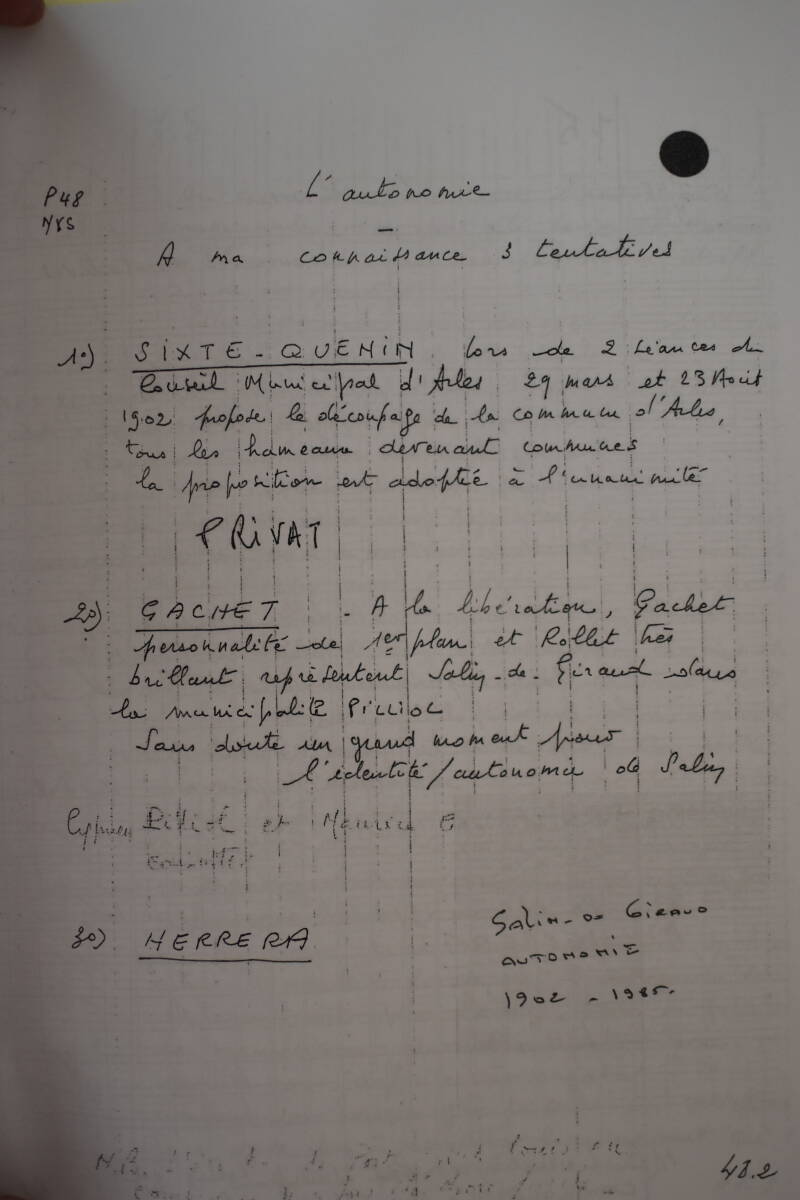 P48
L'autonomie
A ma connaissance 3 tentatives
1o) SIXTE-QUENIN lors de 2 séances du
Conseil Municipal d'Arles 29 mars et 23 Août
1902 propose le découpage de la commune d'Arles,
tous les hameaux devenant communes
la proposition est adoptée à l'unanimité
PRIVAT
2o) GACHET - A la libération, Gachet
personnalité de 1er plan et Rollet très
brillant représentent Salin-de-Giraud dans
la municipalité PILLIOL
Sans doute un grand moment pour
l'identité/autonomie de Salin
Cyprien et Maurice
3o) HERRERA
Salin-de Giraud
AUTONOMIE
1902 - 1985.
N.B. Port Louis
48.2